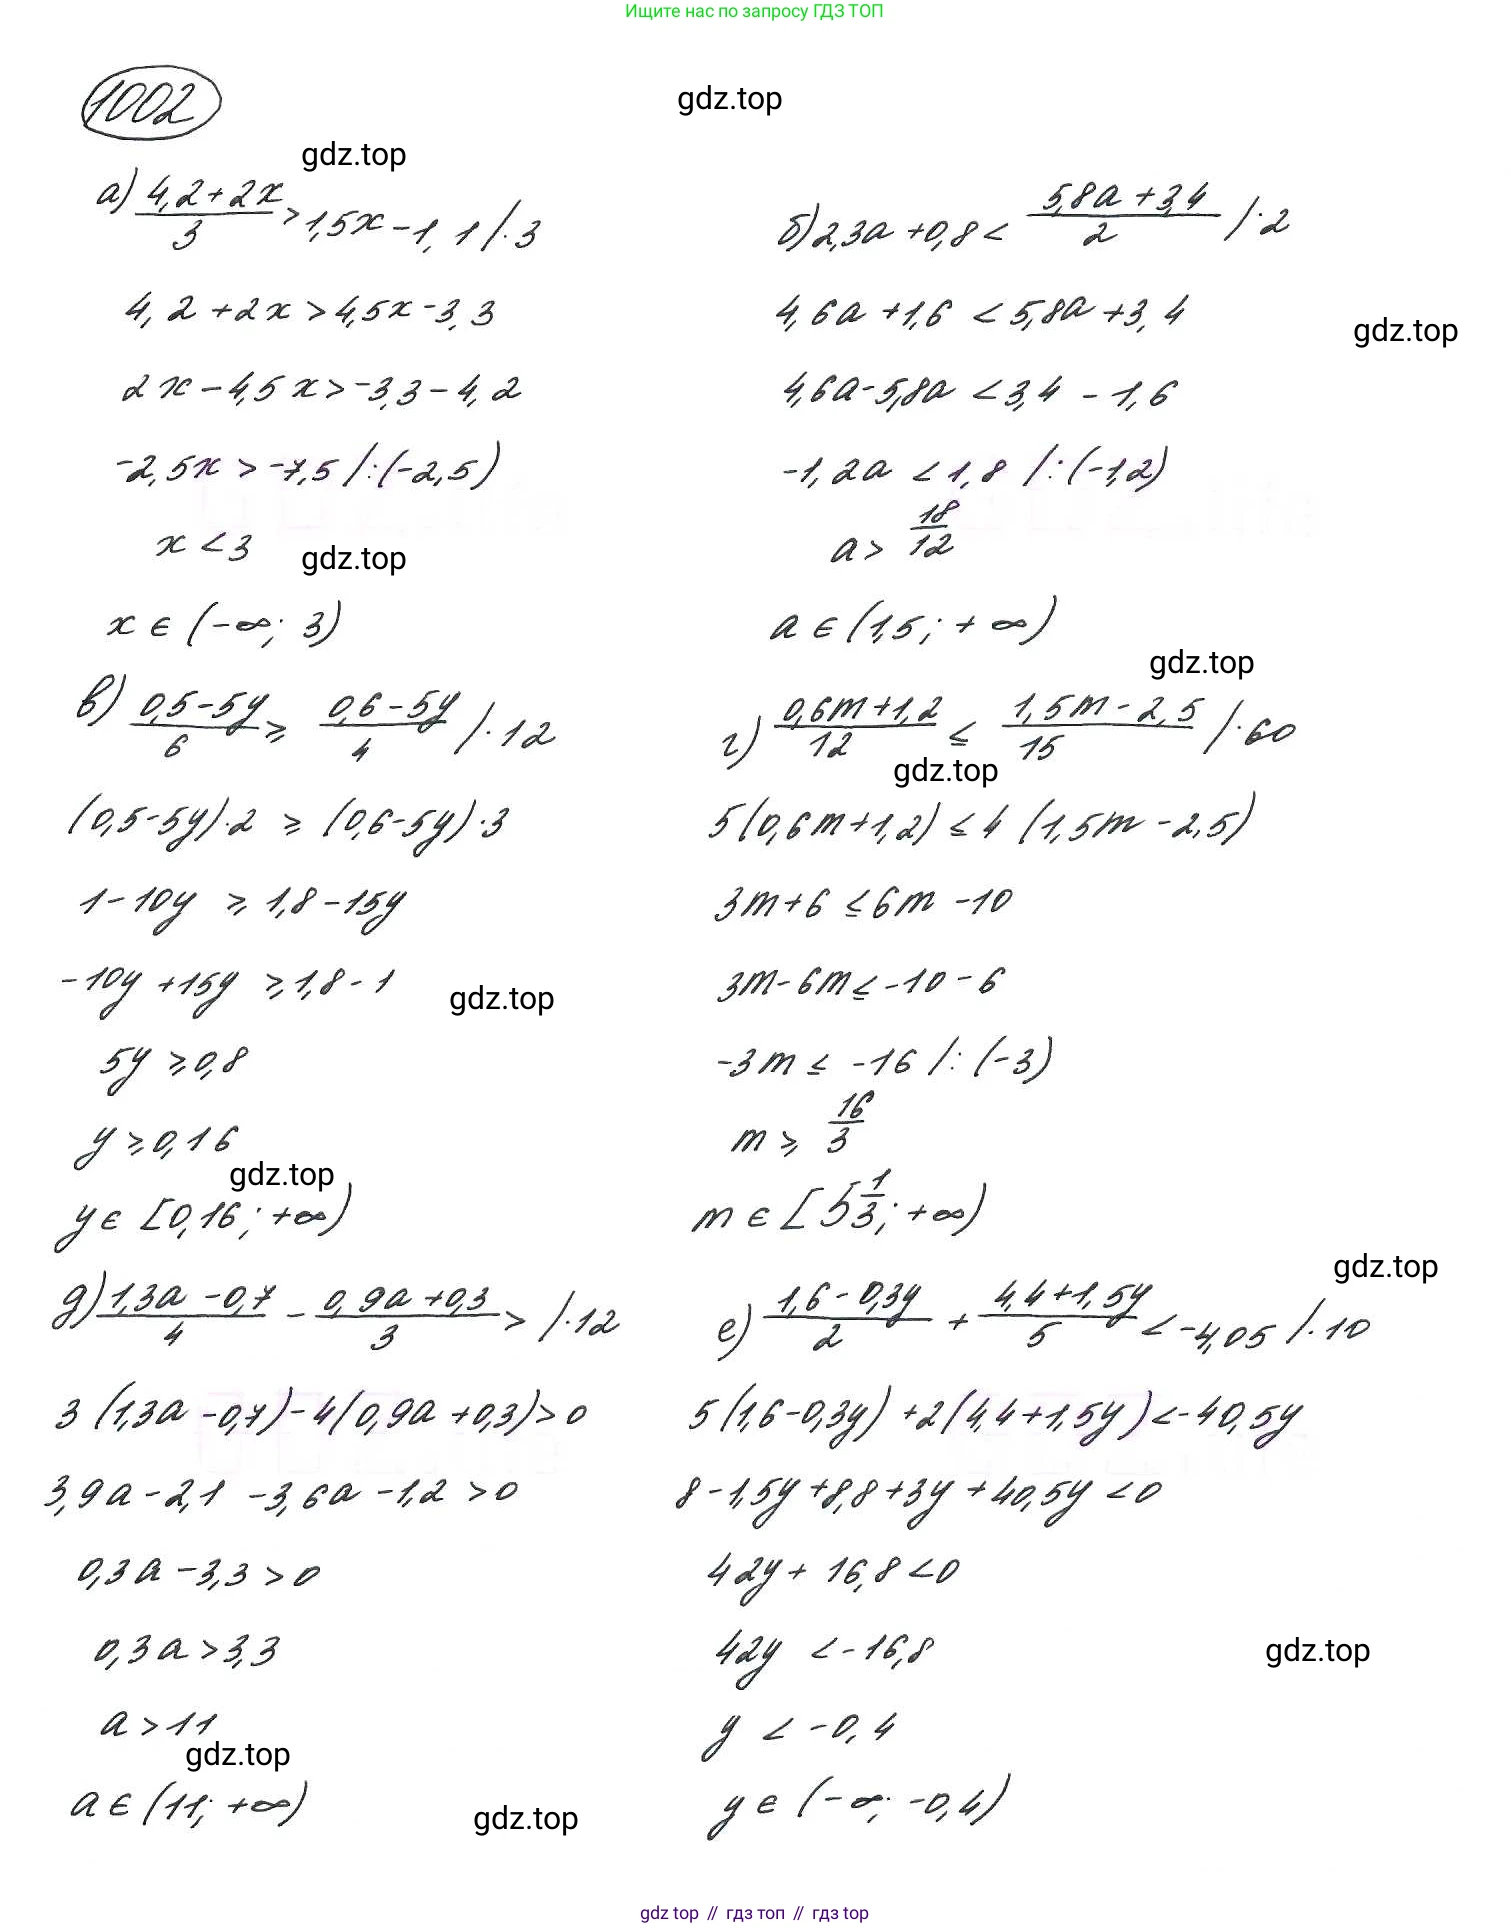 Ищите нас по запросу ГДЗ ТОП
1002
gdz.top
gdz.top
а) (4,2+2x)/3 > 1,5x-1,1 /·3
4,2+2x>4,5x-3,3
2x-4,5x>-3,3-4,2
-2,5x>-7,5 /:(-2,5)
x<3
gdz.top
x∈(-∞; 3)
б) 2,3a+0,8< (5,8a+3,4)/2 /·2
4,6a+1,6<5,8a+3,4
gdz.top
4,6a-5,8a<3,4-1,6
-1,2a<1,8 /:(-1,2)
a> 18/12
a∈(1,5; +∞)
gdz.top
в) (0,5-5y)/6 ≥ (0,6-5y)/4 /·12
(0,5-5y)·2 ≥ (0,6-5y)·3
1-10y ≥ 1,8-15y
-10y+15y ≥ 1,8-1
gdz.top
5y ≥ 0,8
y ≥ 0,16
gdz.top
y∈ [0,16; +∞)
г) (0,6m+1,2)/12 ≤ (1,5m-2,5)/15 /·60
gdz.top
5(0,6m+1,2) ≤ 4 (1,5m-2,5)
3m+6 ≤ 6m-10
3m-6m ≤ -10-6
-3m ≤ -16 /:(-3)
m ≥ 16/3
m∈ [5 1/3; +∞)
gdz.top
д) (1,3a-0,7)/4 - (0,9a+0,3)/3 > /·12
3(1,3a-0,7)-4(0,9a+0,3)>0
3,9a-2,1-3,6a-1,2>0
0,3a-3,3>0
0,3a>3,3
a>11
gdz.top
a∈(11; +∞)
gdz.top
е) (1,6-0,3y)/2 + (4,4+1,5y)/5 < -4,05 /·10
5(1,6-0,3y)+2(4,4+1,5y)<-40,5y
8-1,5y+8,8+3y+40,5y<0
42y+16,8<0
42y<-16,8
gdz.top
y<-0,4
y∈(-∞; -0,4)
gdz top // гдз топ // гдз top